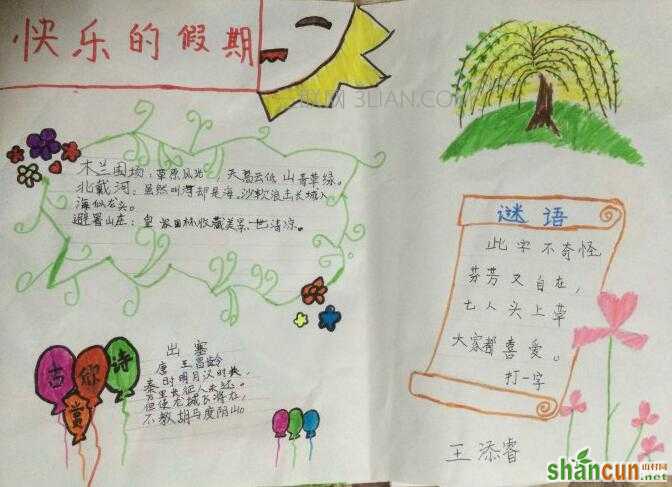 快乐的假期
木兰围场：草原风光，天高云低 山青草绿。
北戴河：虽然叫河却是海，沙软浪击长城入
海似龙头。
避暑山庄：皇家园林收藏美景，一世清凉。
古诗欣赏
出塞
唐 王昌龄
秦时明月汉时关
万里长征人未还。
但使龙城飞将在，
不教胡马度阴山
谜语
此字不奇怪
芬芳又自在，
七人头上草
大家都喜爱。
打一字
王添睿
3LIAN.COM
shancun
山村网
.net